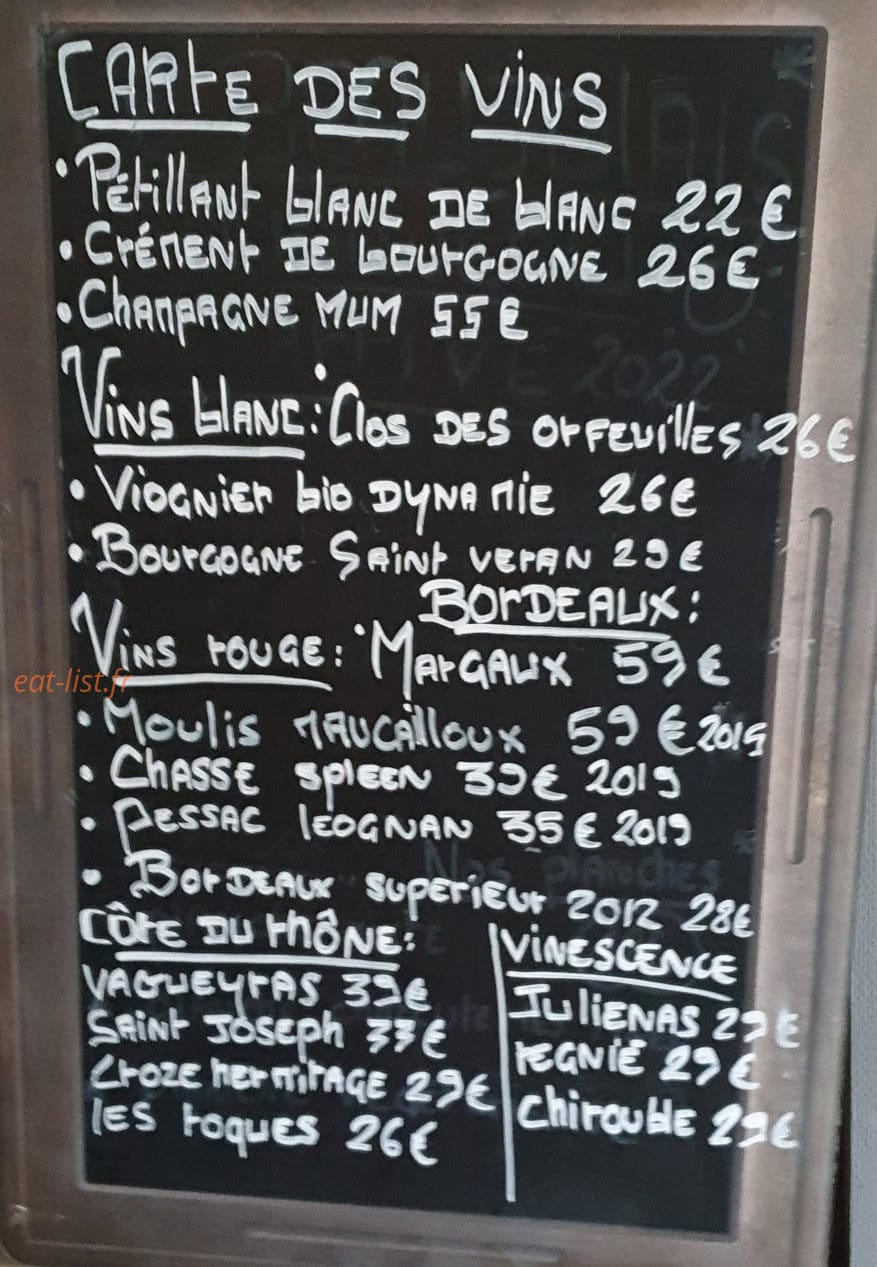 CARTE DES VINS
• Pétillant blanc de blanc 22 €
• Crément de bourgogne 26 €
• Champagne MUM 55 €
Vins blanc : • Clos des orfeuilles 26 €
• Viognier bio dynamie 26 €
• Bourgogne Saint veran 29 €
Bordeaux :
Vins rouge : • Margaux 59 €
• Moulis maucailloux 59 € 2015
• Chasse spleen 39 € 2019
• Pessac léognan 35 € 2019
• Bordeaux superieur 2012 28€
Côte du rhône :
Vaqueyras 39€
Saint Joseph 33€
Croze hermitage 29€
les roques 26€
Vinescence
Julienas 29€
regnié 29€
chirouble 29€
eat-list.fr